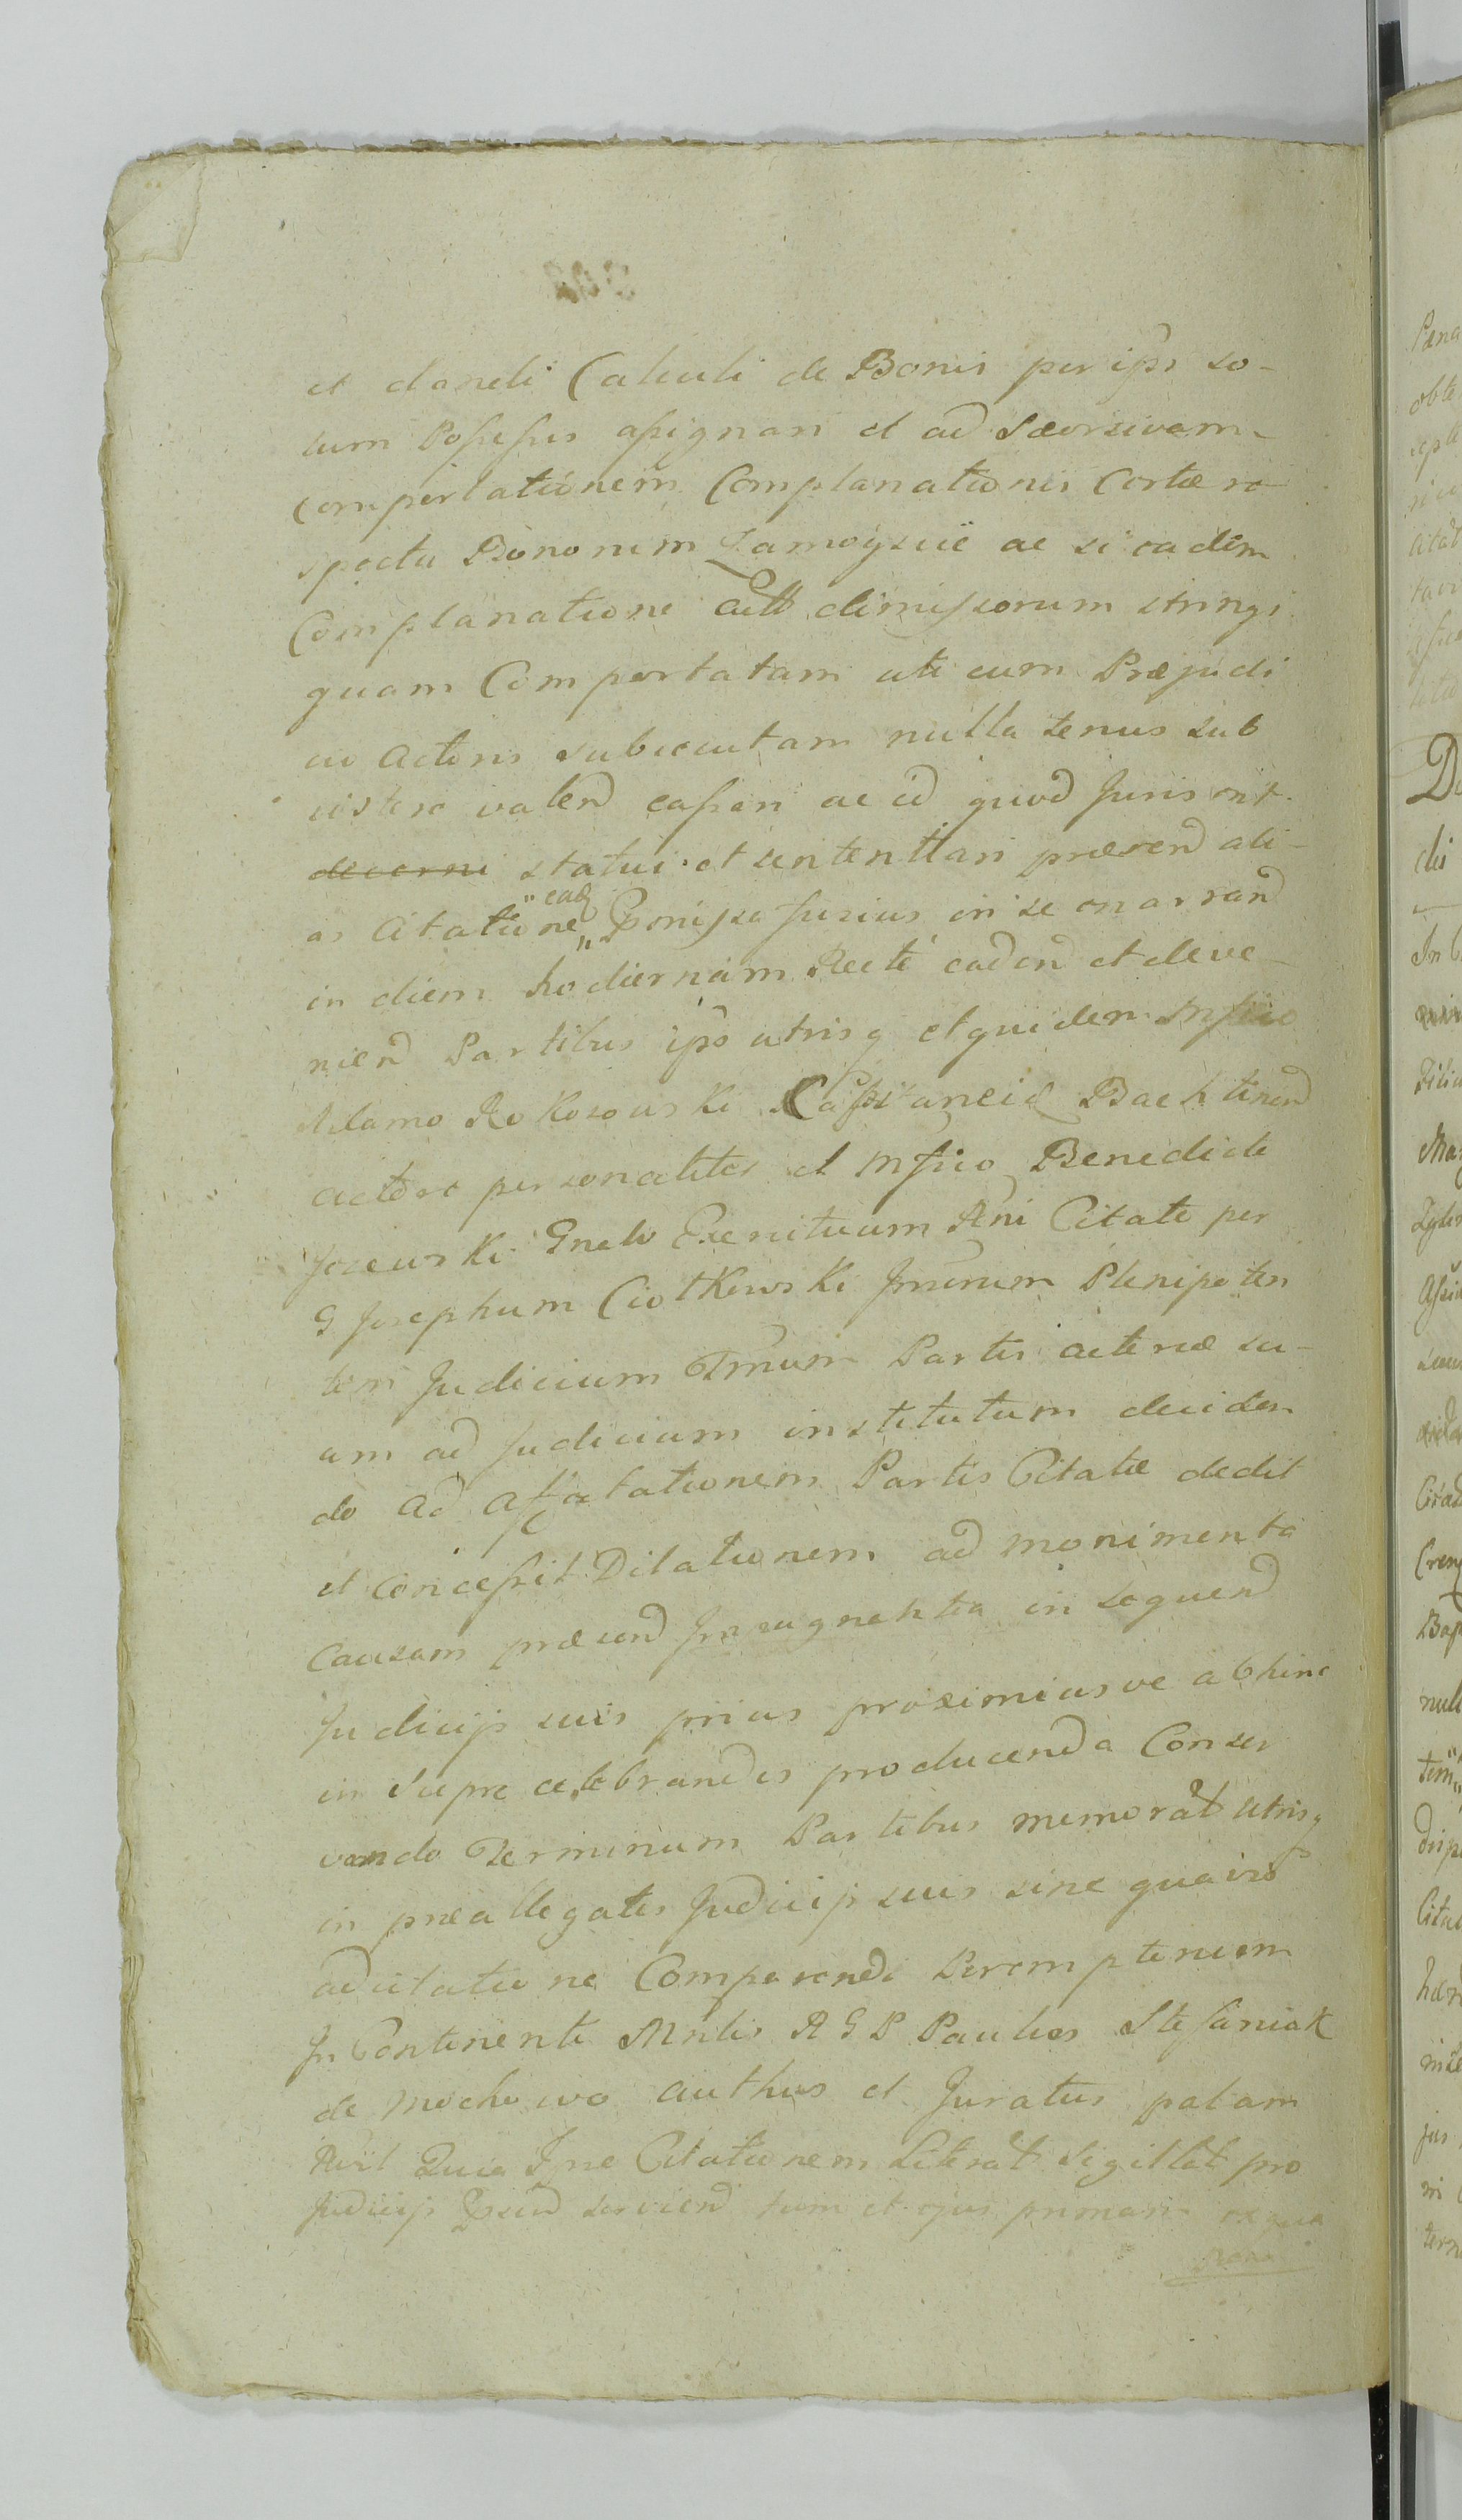 et dandi Calculi de Bonis per ips so-
lum Possessis assignari et ad Seorsivam
comportationem Complanationis Certæ re-
spectu Bonorum Zamoyscie ac si eadem
Complanatione dimissorum stringi
quam Comportatam uti cum Præjudi
cio Actoris subsecutam nulla tenus sub
sistere valend cassari ac id quod Juris erit
decerni statui et sententiari præsend ali-
as Citatione " eadq " Præmissa fusius in se enarrand
in diem hodiernam Recte cadend et deve-
niend Partibus ips utrisq et quidem Mfico
Adamo Rokosowski Capitaneid Bachtinend
actore personaliter et Mfico Benedicto
Jozewski Gnalo Exercituum Rni Citato per
G Josephum Ciotkowski Jmmum Plenipoten
tem Judicium Pnnum Partis actoreæ su-
am ad Judicium institutum deciden
do Ad Affectationem Partis Citatæ dedit
et Concessit Dilationem ad monimenta
Causam præsend Jnsugnehtia in sequend
Judicijs suis prius proximiusve abhinc
in Supre celebrandis producenda Conser
vando Terminum Partibus memorat utrisq
in præallegatis Judicijs suis sine quavis
adcitatione Comparendi Peremptorium
In Continenti Mnlis R G P Paulus Stefaniak
de Mochowo authus et Juratus palam
Rvit Quia Ipse Citationem Literat Sigillat pro
Judicijs Præsend serviend tum et ejus primam ex qua